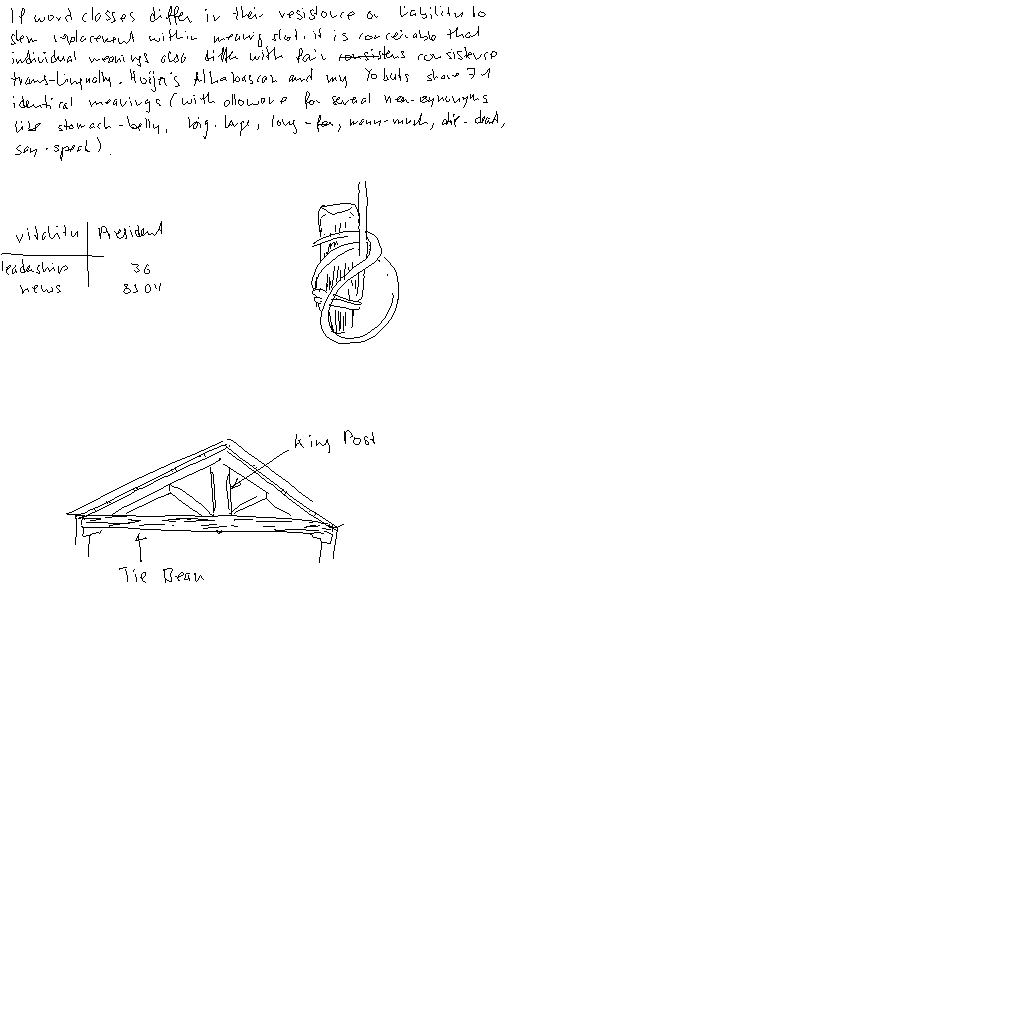 If word classes differ in their resistance or liability to
stem replacement within meaning slot, it is conceivable that
individual meanings also differ with fair consistens consistence
trans-lingually. Hoijer's Athabascan and my Yokuts share 71
identical meanings (with allowance for several near-synonyms
like stomach-belly, big-large, long-far, many-much, die-dead,
say-speak).
vitality President
leadership 36
news 8304
King Post
Tie Beam